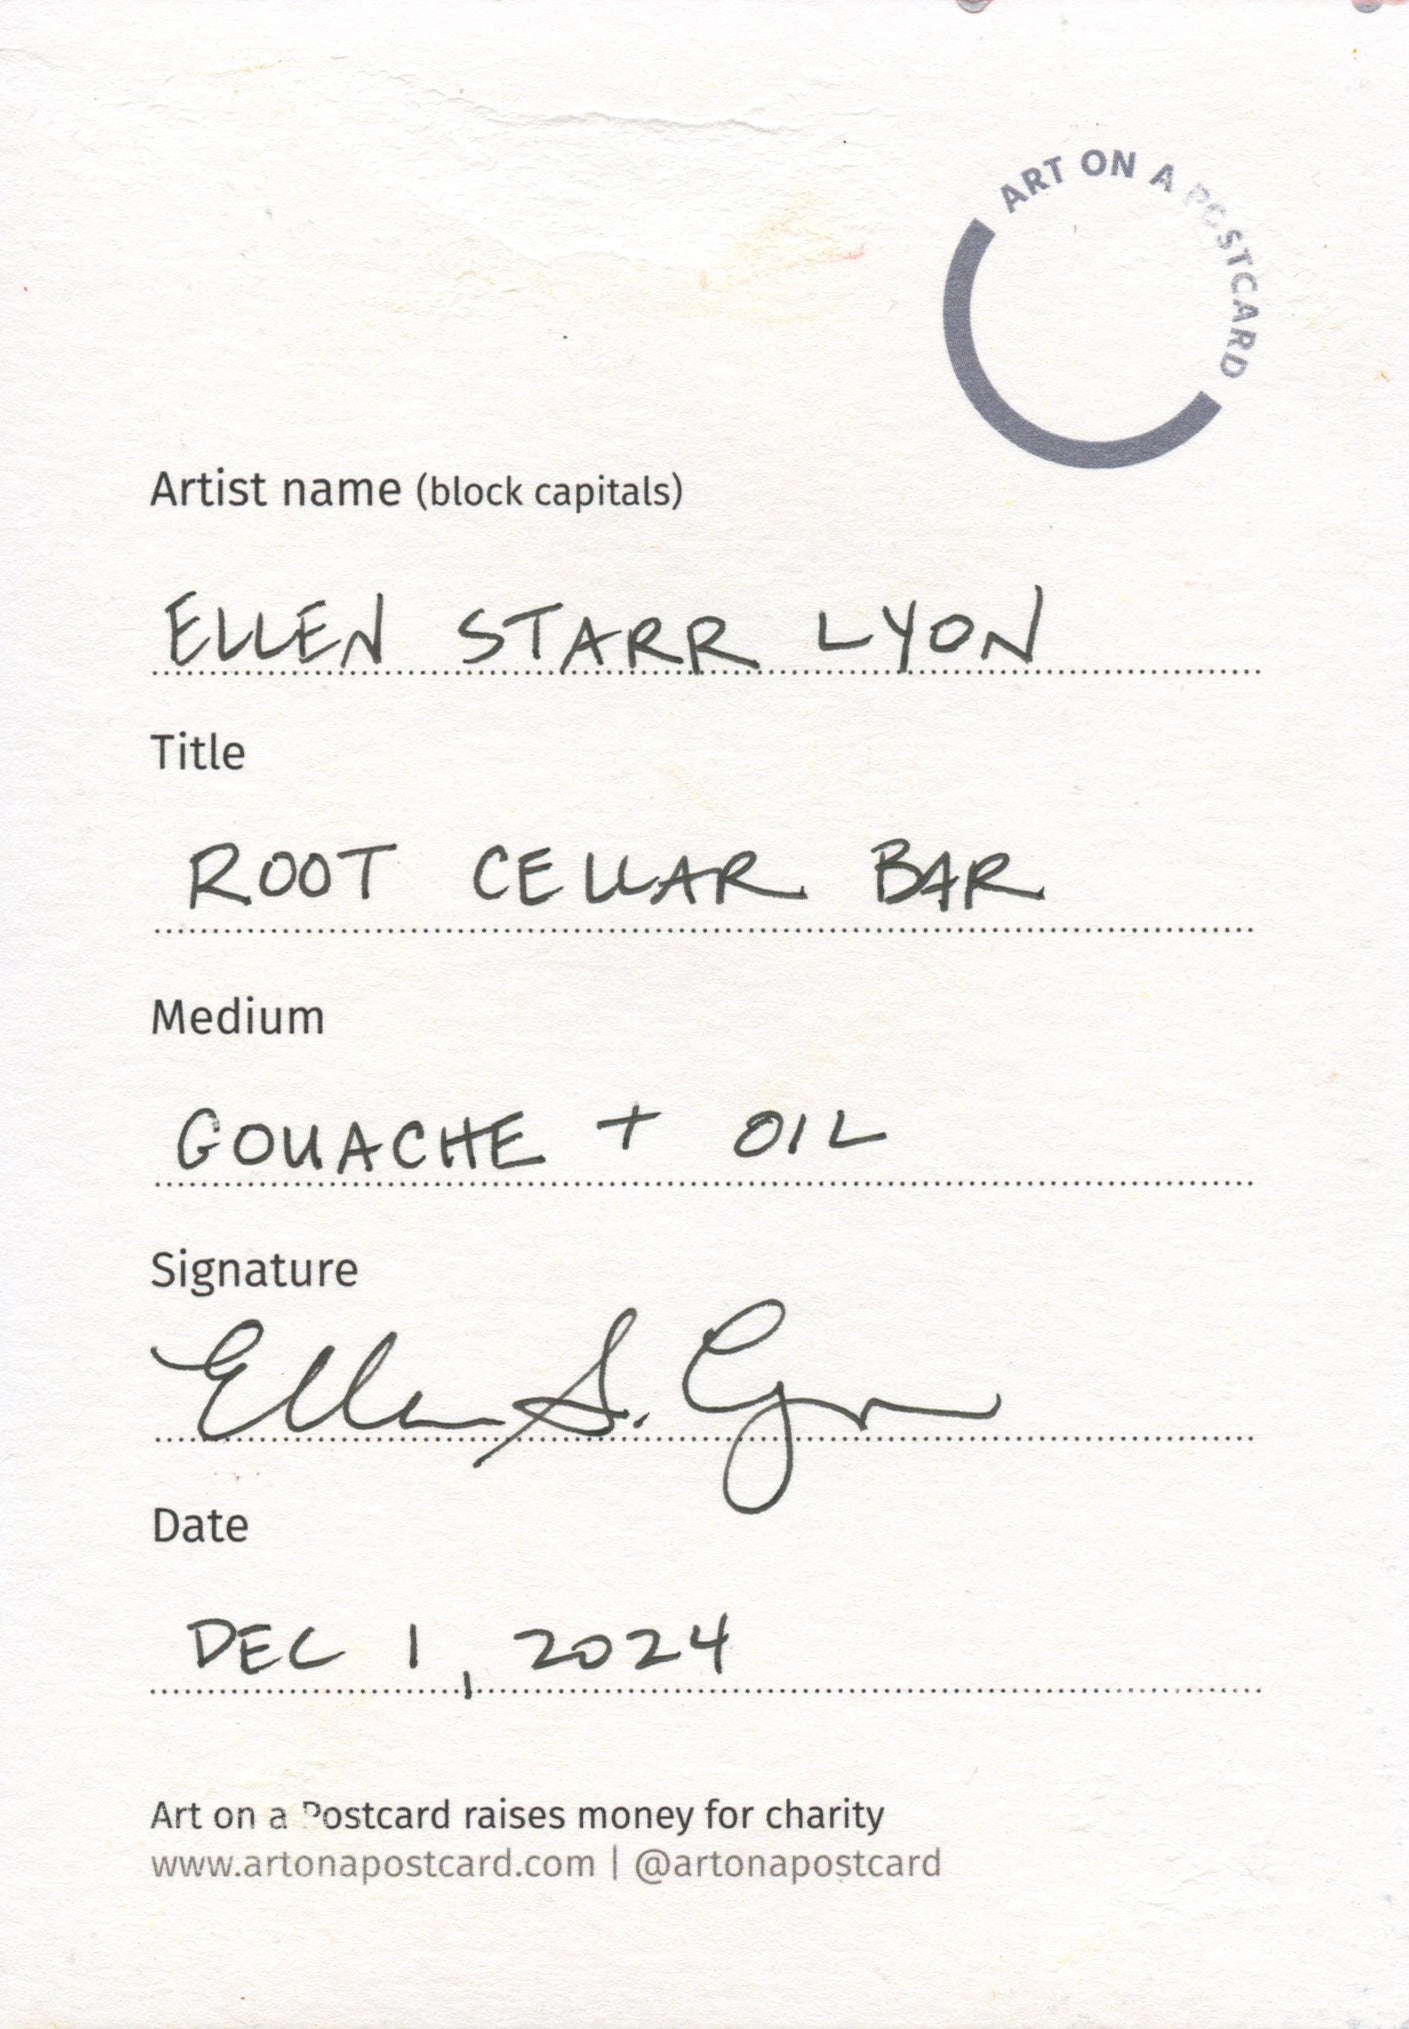 ART ON A POSTCARD
Artist name (block capitals)
ELLEN STARR LYON
Title
ROOT CELLAR BAR
Medium
GOUACHE + OIL
Signature
Ellen S. Lyon
Date
DEC 1, 2024
Art on a Postcard raises money for charity
www.artonapostcard.com | @artonapostcard